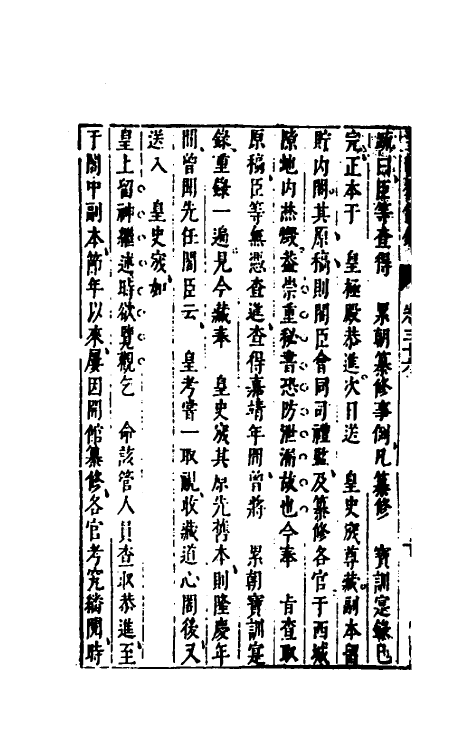 卷三十六
疏曰臣等查得　累朝纂修事例凡纂修　寶訓寔錄已
完正本于　皇極殿恭進次日送　皇史宬尊藏副本留
貯内閣其原稿則閣臣會同司禮監及纂修各官于西城
隙地内燕燬葢崇重秘書恐防泄漏故也今奉　旨查取
原稿臣等無憑查進查得嘉靖年間曾將　累朝寶訓寔
錄重錄一遍見今藏奉　皇史宬其原先舊本則隆慶年
間曾聞先任閣臣云　皇考嘗一取視收藏道心閣後又
送入　皇史宬如
皇上留神繼述時欲覽觀乞　命該管人員查取恭進至
于閣中副本節年以來屢因開館纂修各官考究繙閱時